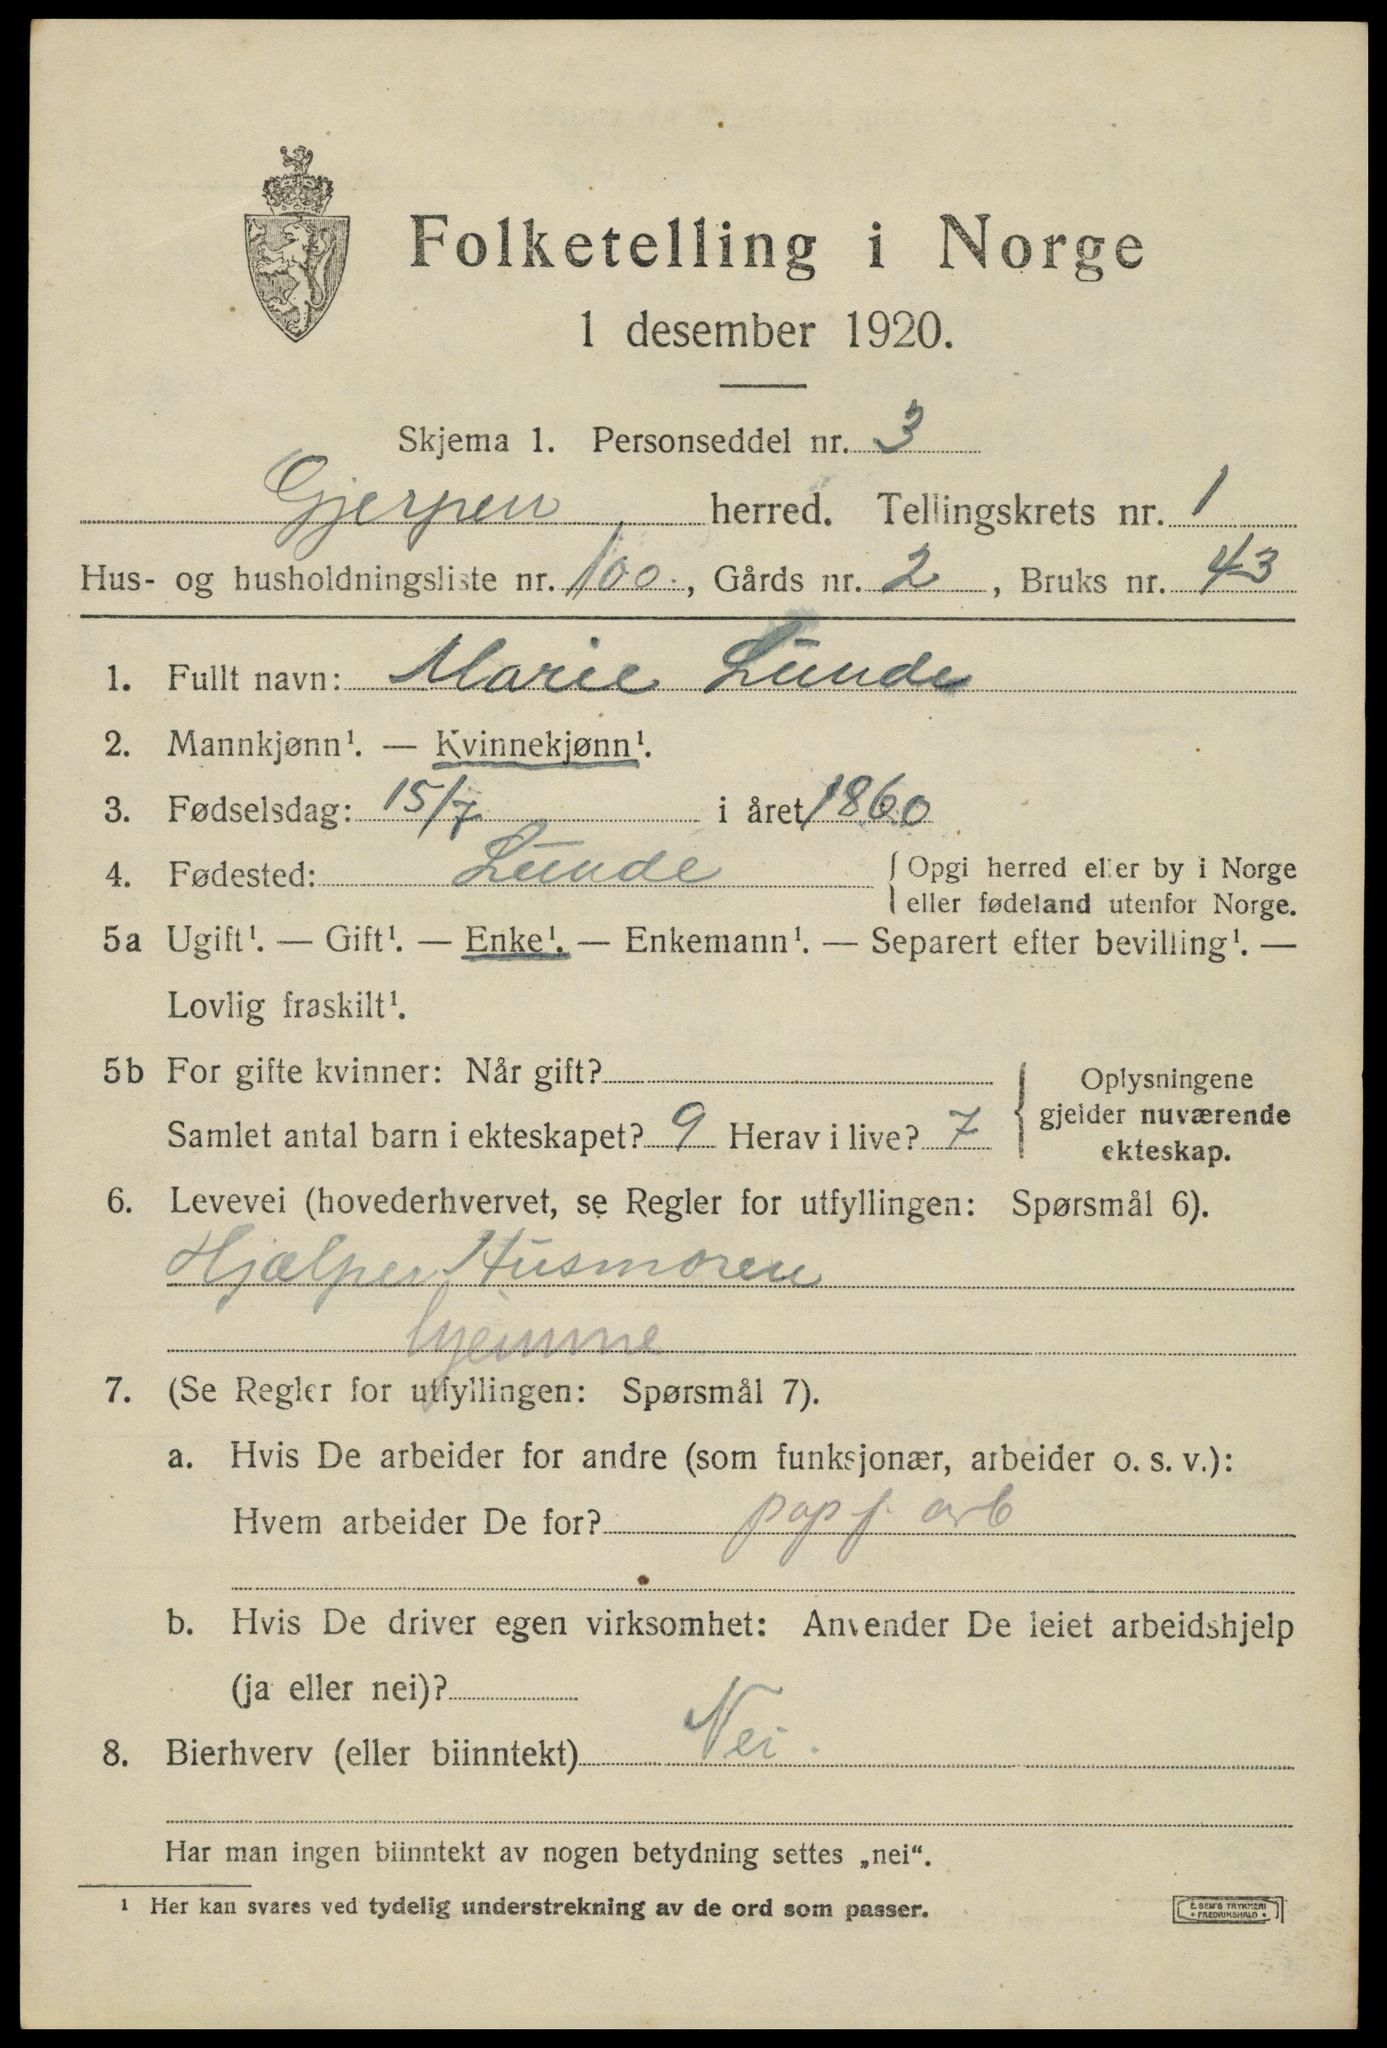 Folketelling i Norge
1 desember 1920.
Skjema 1. Personseddel nr. 3
Gjerpen herred. Tellingskrets nr. 1
Hus- og husholdningsliste nr. 100., Gårds nr. 2, Bruks nr. 43
1. Fullt navn: Marie Lunde
2. Mannkjønn¹. — Kvinnekjønn¹.
3. Fødselsdag: 15/7 i året 1860
4. Fødested: Lunde { Opgi herred eller by i Norge
eller fødeland utenfor Norge.
5a Ugift¹. — Gift¹. — Enke¹. — Enkemann¹. — Separert efter bevilling¹. —
Lovlig fraskilt¹.
5b For gifte kvinner: Når gift?
Samlet antal barn i ekteskapet? 9 Herav i live? 7 { Oplysningene
gjelder nuværende
ekteskap.
6. Levevei (hovederhvervet, se Regler for utfyllingen: Spørsmål 6).
Hjælper Husmoren
hjemme
7. (Se Regler for utfyllingen: Spørsmål 7).
a. Hvis De arbeider for andre (som funksjonær, arbeider o. s. v.):
Hvem arbeider De for? pap f. arb
b. Hvis De driver egen virksomhet: Anvender De leiet arbeidshjelp
(ja eller nei)?
8. Bierhverv (eller biinntekt) Nei.
Har man ingen biinntekt av nogen betydning settes „nei“.
¹ Her kan svares ved tydelig understrekning av de ord som passer.
E. SEM'S TRYKKERI
• FREDRIKSHALD •